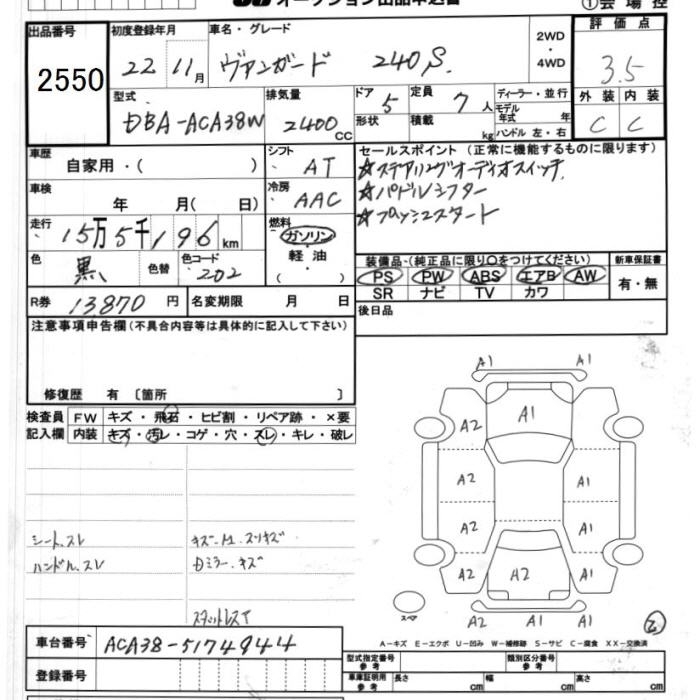 オークション出品申込書
①会場控
出品番号 2550
初度登録年月 22年 11月
車名・グレード ヴァンガード 240S.
2WD・4WD
評価点 3.5
型式 DBA-ACA38W
排気量 2400cc
ドア 5 定員 7人
形状 積載 kg
ディーラー・並行
モデル年式 年
ハンドル 左・右
外装 内装
C C
車歴 自家用・( )
シフト AT
セールスポイント (正常に機能するものに限ります)
☆ステアリングオーディオスイッチ
☆パドルシフター
☆プッシュスタート
車検 年 月( 日)
冷房 AAC
走行 15万5千196km
燃料 ガソリン・軽油・( )
色 黒 色替 色コード 202
装備品・(純正品に限り〇をつけてください)
PS PW ABS エアB AW
SR ナビ TV カワ
新車保証書 有・無
R券 13,870円 名変期限 月 日
後日品
注意事項申告欄(不具合内容等は具体的に記入して下さい)
修復歴 有〔箇所 〕
検査員記入欄
FW キズ・飛石・ヒビ割・リペア跡・×要
内装 キズ・汚レ・コゲ・穴・スレ・キレ・破レ
シート.スレ
ハンドル.スレ
Dミラー.キズ
A1 A1
A1
A2 A1
A2 A1
A2 A1
A2 A2 A1
A1 A1 A1
スペア
A-キズ E-エクボ U-凹み W-補修跡 S-サビ C-腐食 XX-交換済
車台番号 ACA38-5174944
登録番号
型式指定番号 参考 類別区分番号 参考
車庫証明用 参考 長さ cm 幅 cm 高さ cm